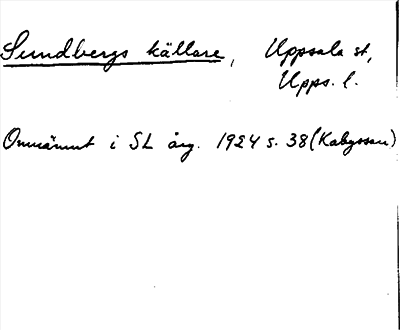 Sundbergs källare, Uppsala st,
Upps. l.
Omnämnt i SL årg. 1924 s. 38 (Kabyssen)